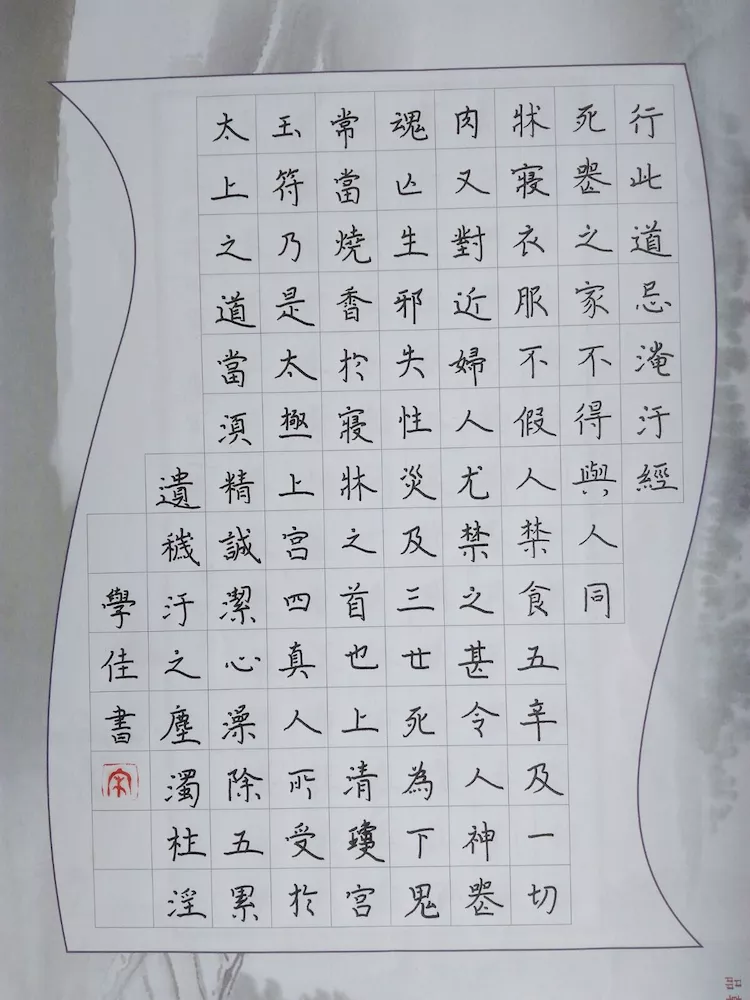 行此道忌淹汙經
死喪之家不得與人同
牀寢衣服不假人禁食五辛及一切
肉又對近婦人尤禁之甚令人神喪
魂亡生邪失性災及三世死為下鬼
常當燒香於寢牀之首也上清瓊宮
玉符乃是太極上宮四真人所受於
太上之道當須精誠潔心澡除五累
遺穢汙之塵濁杜淫
學佳書
宋